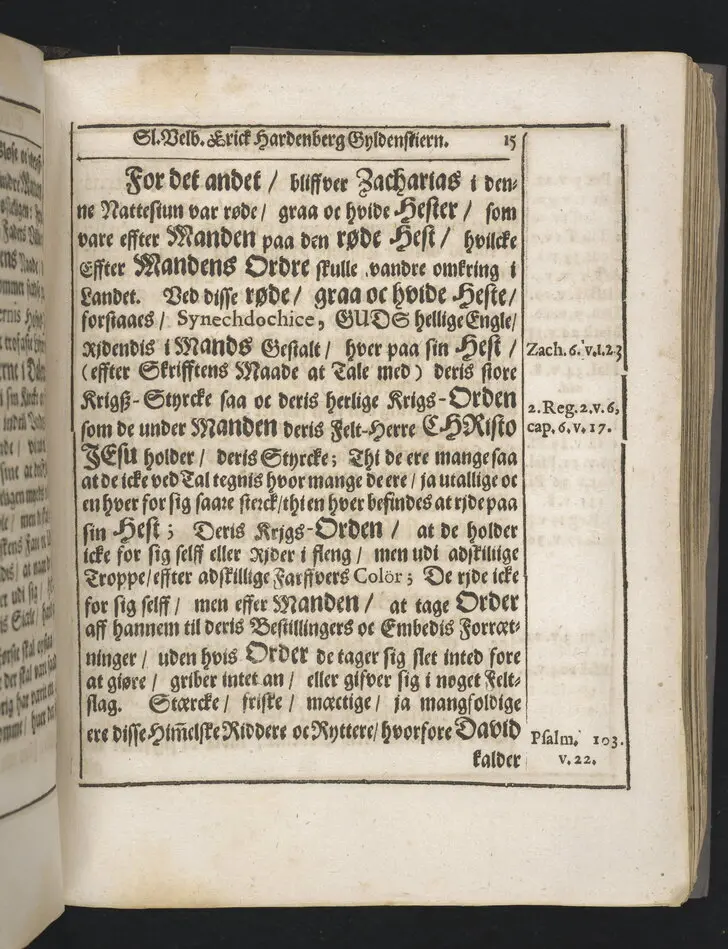 Sl. Velb. Erick Hardenberg Gyldenstiern. 15
For det andet / blifver Zacharias i den-
ne Nattestiun var røde / graa oc hvide Hester / som
vare effter Manden paa den røde Hest / hvilcke
Effter Mandens Ordre skulle vandre omkring i
Landet. Ved disse røde / graa oc hvide Heste /
forstaaes / Synechdochice, GUDS hellige Engle /
Rjdendis i Mands Gestalt / hver paa sin Hest /
(effter Skrifftens Maade at Tale med) deris store
Krigß-Styrcke saa oc deris herlige Krigs-Orden
som de under Manden deris Felt-Herre CHRisto
JEsu holder / deris Styrcke; Thi de ere mange saa
at de icke ved Tal tegnis hvor mange de ere / ja utallige oc
en hver for sig saare sterck / thi en hver befindes at rjde paa
sin Hest; Deris Krjgs-Orden / at de holder
icke for sig self eller Rjder i fleng / men udi adskillige
Troppe / effter adskillige Farffvers Colör; De rjde icke
for sig self / men effer Manden / at tage Order
aff hannem til deris Bestillingers oc Embedis Forræt-
ninger / uden hvis Order de tager sig slet inted fore
at giøre / griber intet an / eller gifver sig i noget Felt-
slag. Stærcke / friske / mæctige / ja mangfoldige
ere disse Him̃elske Riddere oc Ryttere / hvorfore David
kalder
Zach. 6. v. 1. 2. 3
2. Reg. 2. v. 6,
cap. 6. v. 17.
Psalm. 103.
v. 22.